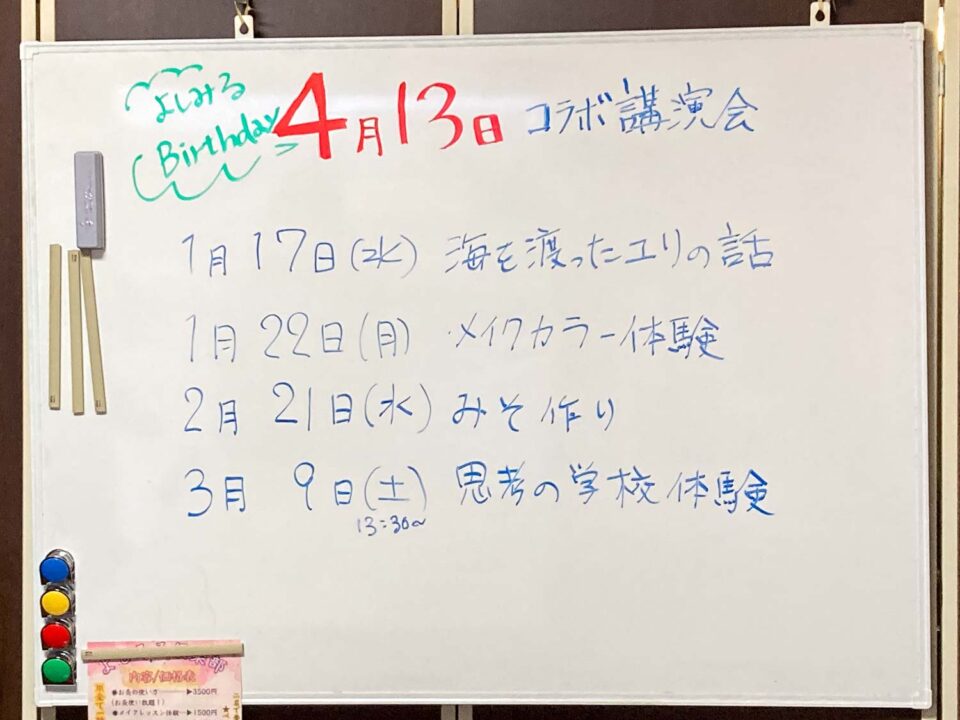 よしみる
Birthday
4月13日 コラボ講演会
1月17日(水) 海を渡ったユリの話
1月22日(月) メイクカラー体験
2月21日(水) みそ作り
3月9日(土) 思考の学校体験
13:30~
内容/価格表
●お灸の使い方……▶3500円
(お灸使い放題!)
●メイクレッスン体験…▶1500円